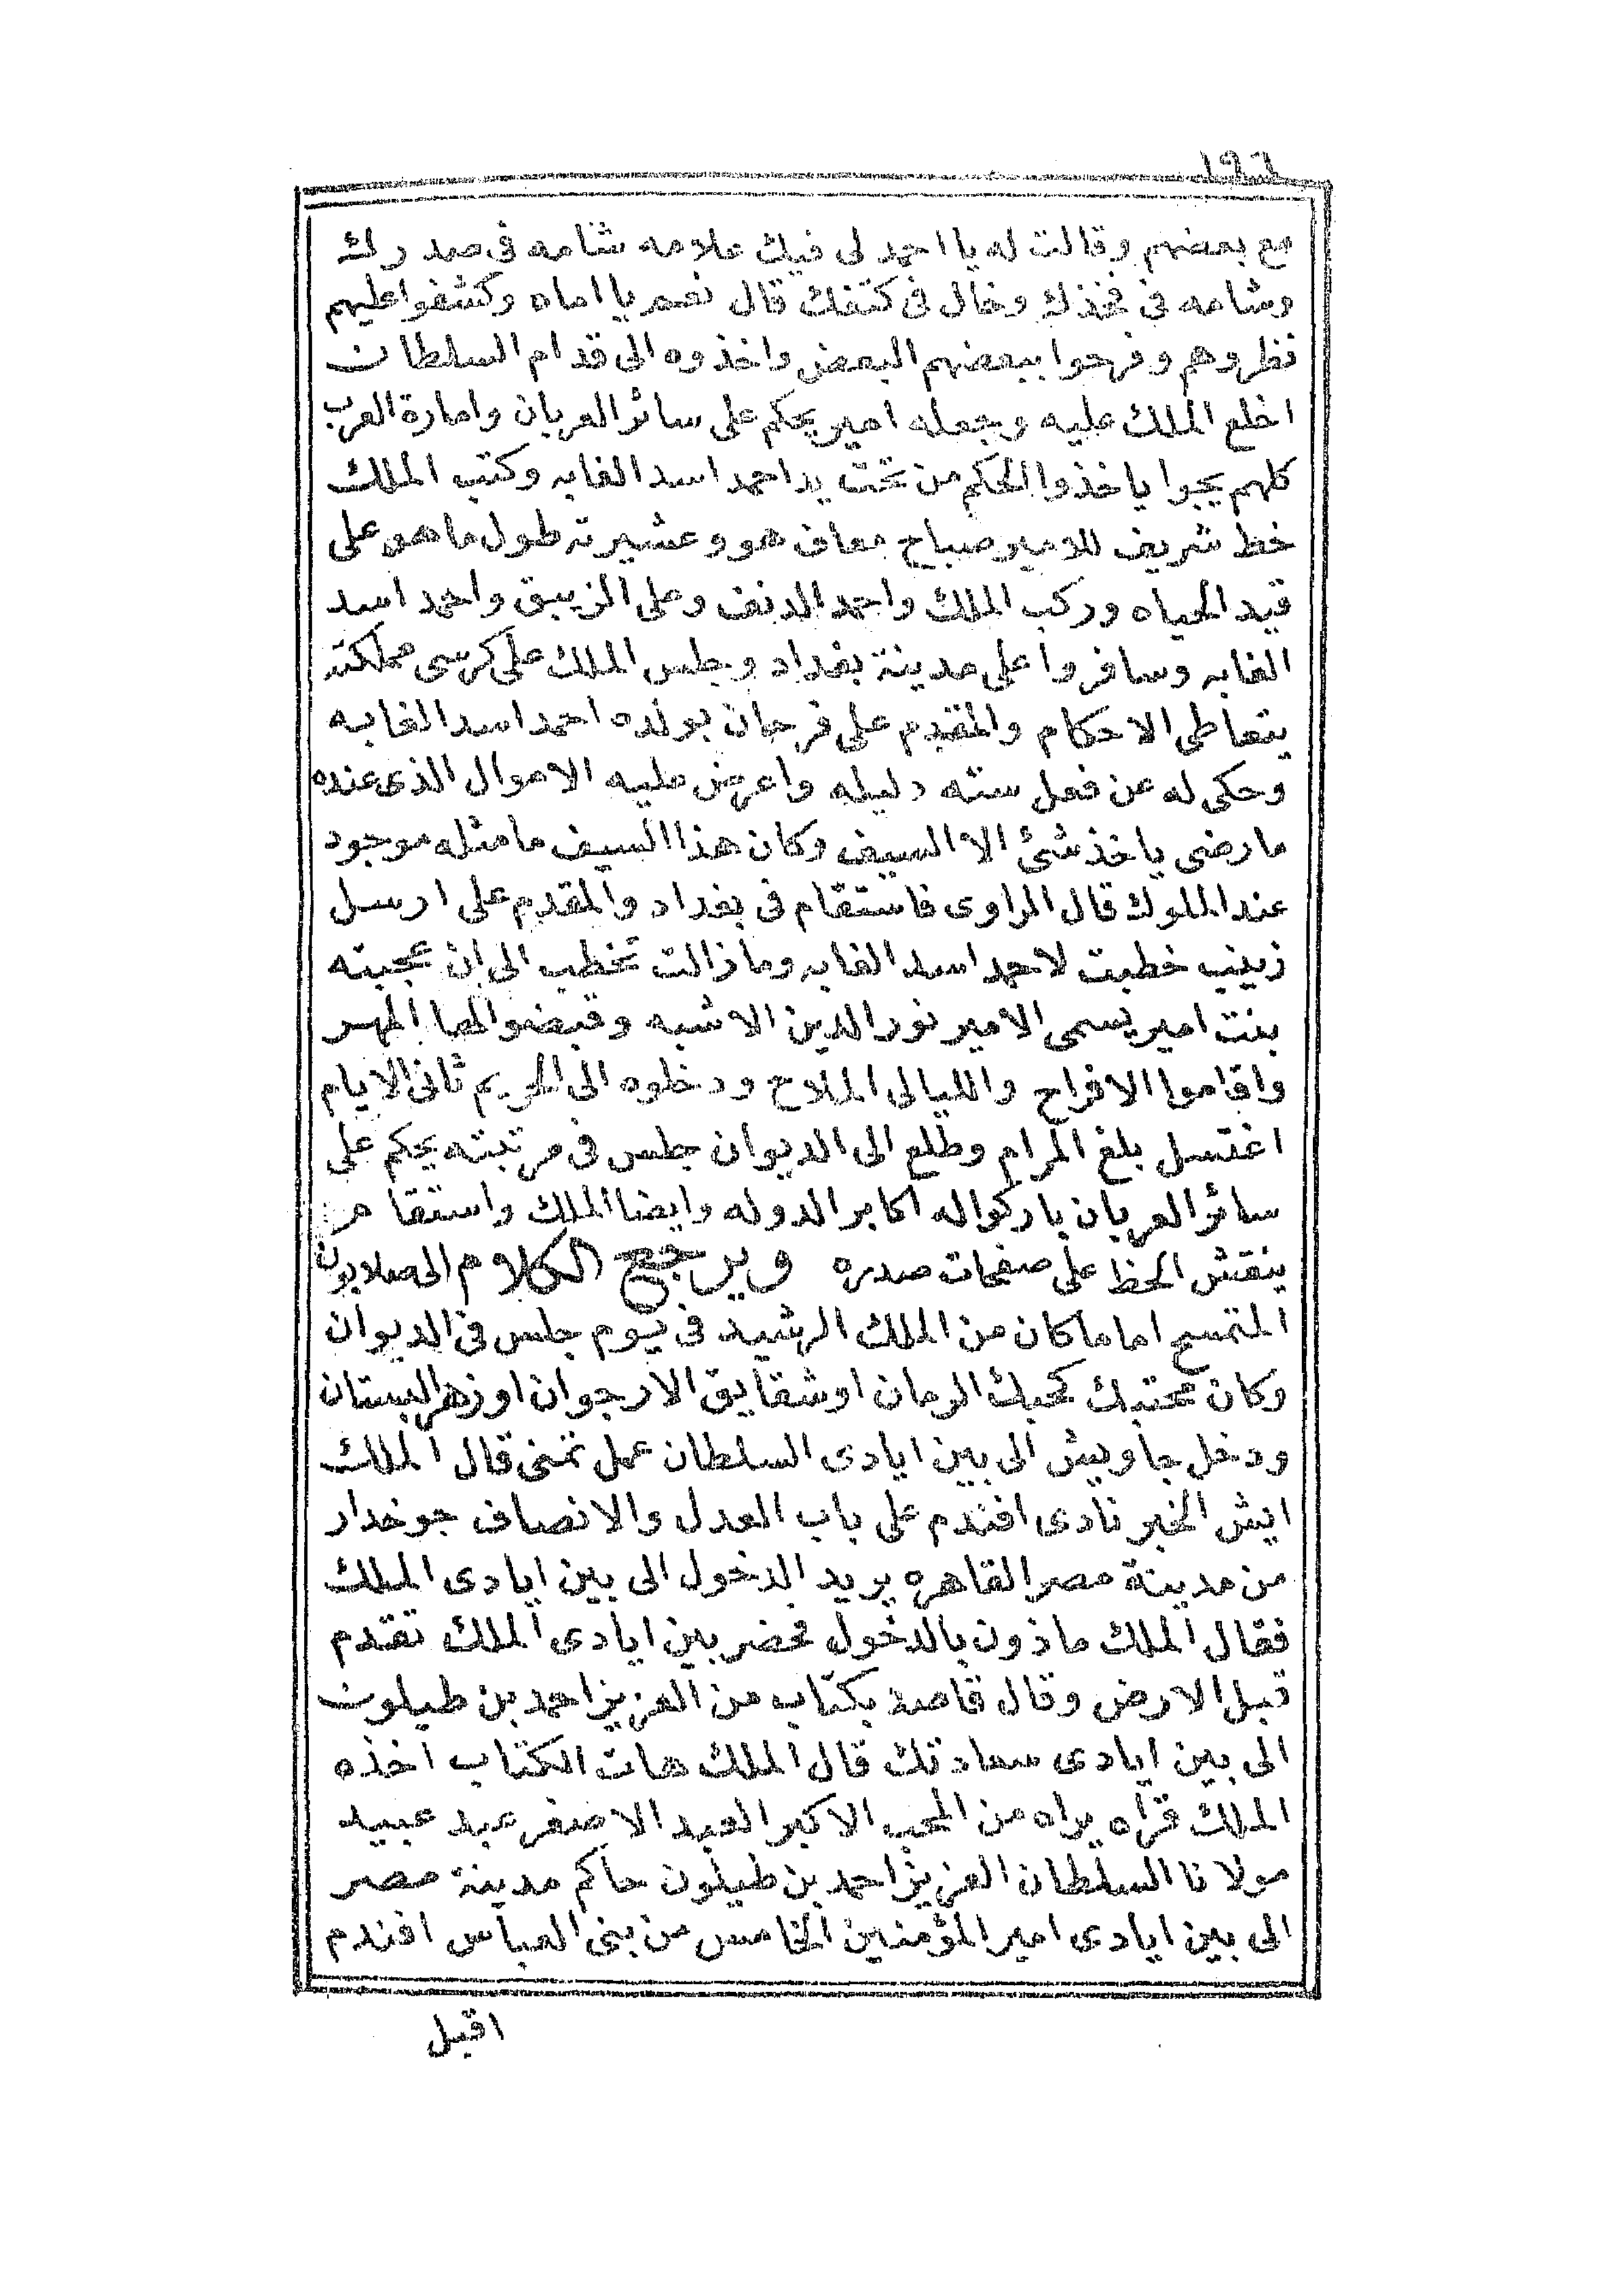 مع بعضهم وقالت له يا احمد لى فيك علامه شامه فى صدرك
وشامه فى فخذك وخال فى كتفك قال نعم يا اماه وكشفوا عليهم
نظروهم وفرحوا ببعضهم البعض واخذوه الى قدام السلطان
اخلع الملك عليه وجعله امير يحكم على سائر العربان وامارة العرب
كلهم يجوا ياخذوا الحكم من تحت يد احمد اسد الغابه وكتب الملك
خط شريف للامير صباح معاف هو وعشيرته طول ما هو على
قيد الحياه وركب الملك واحمد الدنف وعلى الزيبق واحمد اسد
الغابه وسافروا على مدينة بغداد وجلس الملك على كرسى مملكته
يتعاطى الاحكام والمقدم على فرحان بولده احمد اسد الغابه
وحكى له عن فعل سته دليله واعرض عليه الاموال الذى عنده
ما رضى ياخذ شئ الا السيف وكان هذا السيف ما مثله موجود
عند الملوك قال الراوى فاستقام فى بغداد والمقدم على ارسل
زينب خطبت لاحمد اسد الغابه وما زالت تخطب الى ان عجبته
بنت امير يسمى الامير نور الدين الاشبه وقبضوا لها المهر
واقاموا الافراح والليالى الملاح ودخلوه الى الحريم ثانى الايام
اغتسل بلغ المرام وطلع الى الديوان جلس فى مرتبته يحكم على
سائر العربان باركوا له اكابر الدوله وايضا الملك واستقام
ينقش الحظ على صفحات صدره ويرجع الكلام الى صلابون
المتمسح اما ما كان من الملك الرشيد فى يوم جلس فى الديوان
وكان محتبك كحبك الرمان او شقايق الارجوان او زهر البستان
ودخل جاويش الى بين ايادى السلطان عمل تمنى قال الملك
ايش الخبر نادى افندم على باب العدل والانصاف جوخدار
من مدينة مصر القاهره يريد الدخول الى بين ايادى الملك
فقال الملك ماذون بالدخول فحضر بين ايادى الملك تقدم
قبل الارض وقال قاصد بكتاب من العزيز احمد بن طيلون
الى بين ايادى سعادتك قال الملك هات الكتاب اخذه
الملك قرآه يراه من المحب الاكبر العبد الاصغر عبد عبيد
مولانا السلطان العزيز احمد بن طيلون حاكم مدينة مصر
الى بين ايادى امير المؤمنين الخامس من بنى العباس افندم
اقبل